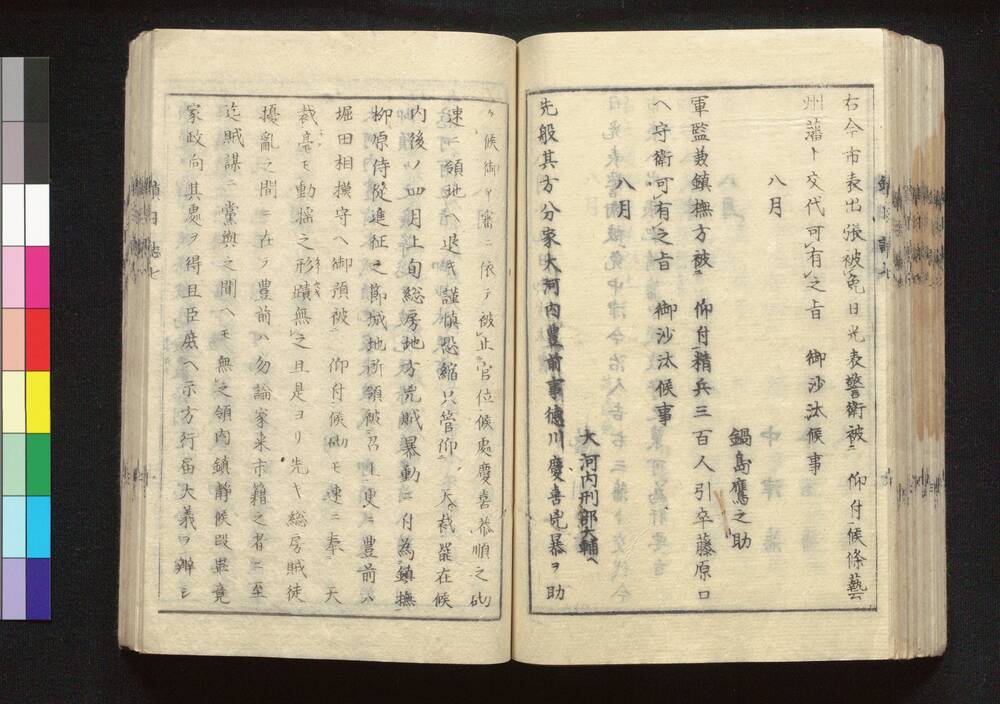 右今市表出張被免日光表警衛被 仰付候條藝
州藩ト交代可有之旨 御沙汰候事
八月
鍋島鷹之助
軍監兼鎮撫方被 仰付精兵三百人引卒藤原口
ヘ守衛可有之旨 御沙汰候事
八月
大河内刑部大輔ヘ
先般其方分家大河内豊前事徳川慶喜兇暴ヲ助
ケ候御 ニ依テ被止官位候處慶喜恭順之砌
速ニ領地ヘ退去謹慎恐縮只管仰 天裁罷在候
内後ノ四月上旬総房地方兇賊暴動ニ付為鎮撫
柳原侍従進征之節城地所領被召上更ニ豊前ハ
堀田相模守ヘ御預被 仰付候砌モ速ニ奉 天
裁毫モ動揺之形蹟無之且是ヨリ先キ総房賊徒
擾亂之間ニ在テ豊前ハ勿論家来市籍之者ニ至
迄賊謀ニ黨與之間ヘモ無之領内鎮静候段畢竟
家政向其處ヲ得且臣庶ヘ示方行届大義ヲ辨シ